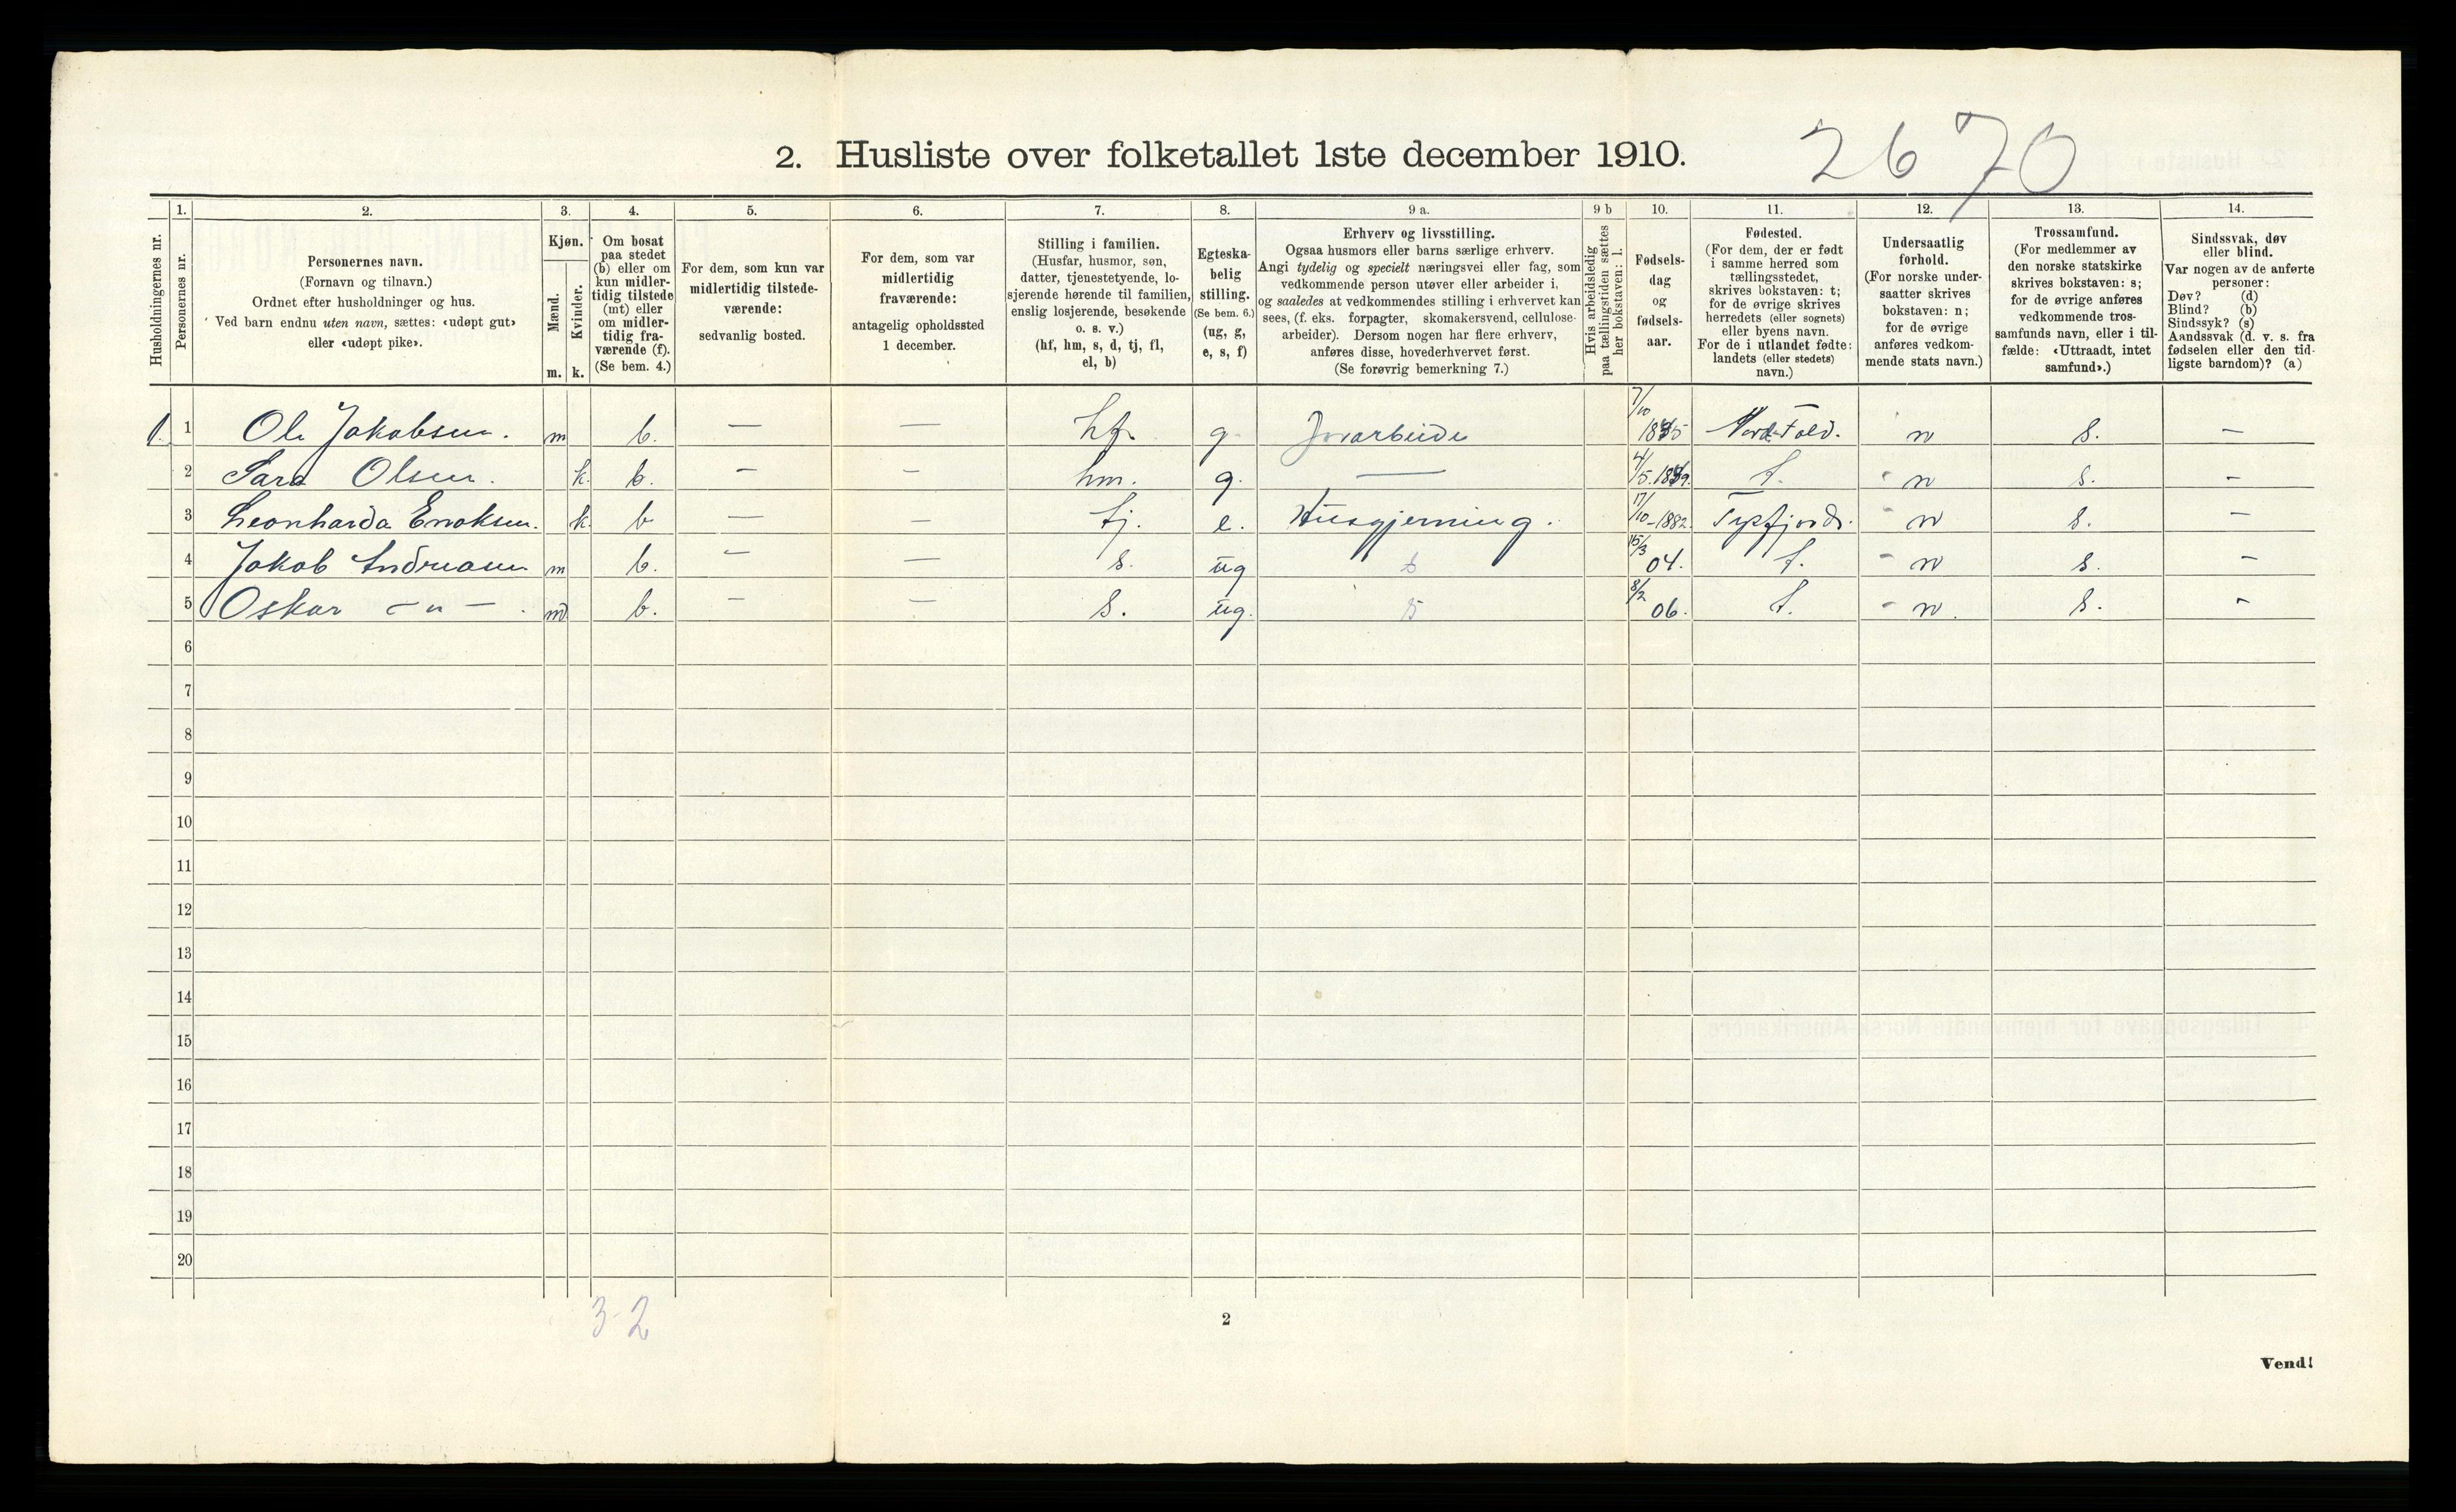 2670
2. Husliste over folketallet 1ste december 1910.
Husholdningernes nr.
1.
Personernes nr.
2.
Personernes navn.
(Fornavn og tilnavn.)
Ordnet efter husholdninger og hus.
Ved barn endnu uten navn, sættes: «udøpt gut»
eller «udøpt pike».
3.
Kjøn.
Mænd.
Kvinder.
m. k.
4.
Om bosat
paa stedet
(b) eller om
kun midler-
tidig tilstede
(mt) eller
om midler-
tidig fra-
værende (f).
(Se bem. 4.)
5.
For dem, som kun var
midlertidig tilstede-
værende:
sedvanlig bosted.
6.
For dem, som var
midlertidig
fraværende:
antagelig opholdssted
1 december.
7.
Stilling i familien.
(Husfar, husmor, søn,
datter, tjenestetyende, lo-
sjerende hørende til familien,
enslig losjerende, besøkende
o. s. v.)
(hf, hm, s, d, tj, fl,
el, b)
8.
Egteska-
belig
stilling.
(Se bem. 6.)
(ug, g,
e, s, f)
9 a.
Erhverv og livsstilling.
Ogsaa husmors eller barns særlige erhverv.
Angi tydelig og specielt næringsvei eller fag, som
vedkommende person utøver eller arbeider i,
og saaledes at vedkommendes stilling i erhvervet kan
sees, (f. eks. forpagter, skomakersvend, cellulose-
arbeider). Dersom nogen har flere erhverv,
anføres disse, hovederhvervet først.
(Se forøvrig bemerkning 7.)
9 b
Hvis arbeidsledig
paa tællingstiden sættes
her bokstaven: l.
10.
Fødsels-
dag
og
fødsels-
aar.
11.
Fødested.
(For dem, der er født
i samme herred som
tællingsstedet,
skrives bokstaven: t;
for de øvrige skrives
herredets (eller sognets)
eller byens navn.
For de i utlandet fødte:
landets (eller stedets)
navn.)
12.
Undersaatlig
forhold.
(For norske under-
saatter skrives
bokstaven: n;
for de øvrige
anføres vedkom-
mende stats navn.)
13.
Trossamfund.
(For medlemmer av
den norske statskirke
skrives bokstaven: s;
for de øvrige anføres
vedkommende tros-
samfunds navn, eller i til-
fælde: «Uttraadt, intet
samfund».)
14.
Sindssvak, døv
eller blind.
Var nogen av de anførte
personer:
Døv? (d)
Blind? (b)
Sindssyk? (s)
Aandssvak (d. v. s. fra
fødselen eller den tid-
ligste barndom)? (a)
1. 1 Ole Jakobsen. m b. — — hf. g. Jorarbeide 7/10 Nord-Fold. n s. —
2 Sara Olsen. k. b. — — hm. g. — 4/5. t. n s. —
3 Leonharda Enoksen. k. b — — tj. e. Husgjerning. 17/10-1882. Tysfjord. n s. —
4 Jakob Andreasen m b. — — s. ug 15/3 04. t. n s. —
5 Oskar — " — . m b. — — s. ug. 8/2 06. t. n. s. —
6
7
8
9
10
11
12
13
14
15
16
17
18
19
20
3-2
2
Vend!